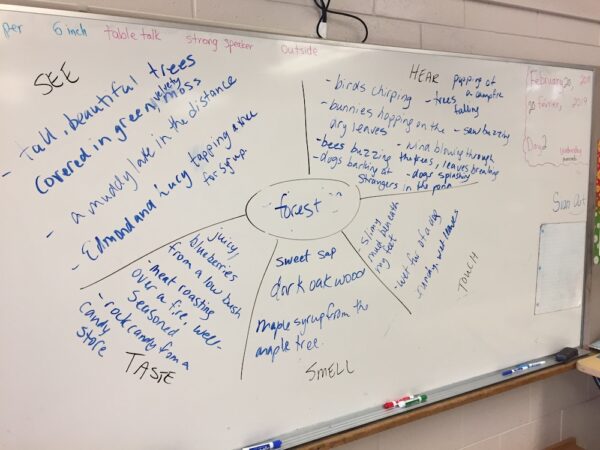 per 6 inch table talk strong speaker outside
SEE
- tall, beautiful trees
covered in green velvety moss
- a muddy lake in the distance
- Edmond and Lucy tapping a tree
for syrup
HEAR
popping of
a campfire
- birds chirping
- trees
falling
- bunnies hopping on the
dry leaves
- saw buzzing
- bees buzzing
- wind blowing through
the trees, leaves breaking
- dogs barking at
strangers
- dogs splashing
in the pond
February 20, 2019
20 février, 2019
Day 2
Sign Out
forest
juicy,
blueberries
from a low bush
- meat roasting
over a fire, well-
seasoned
- rock candy from a
candy
store
TASTE
sweet sap
dark oak wood
maple syrup from the
maple tree.
SMELL
slimy
mud beneath
my feet
- wet fur of a dog
sandy, wet leaves
TOUCH